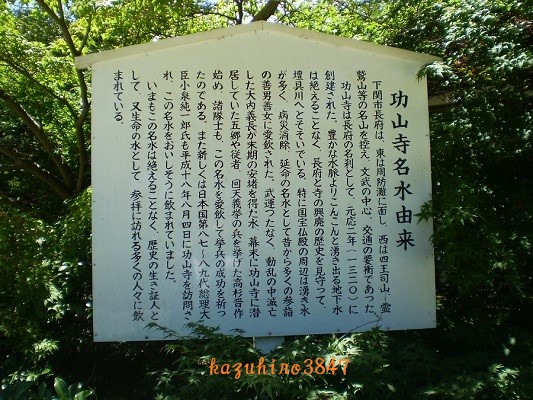 功山寺名水由来
下関市長府は、東は周防灘に面し、西は四王司山、霊
鷲山等の名山を控え、文武の中心、交通の要衝であった。
功山寺は長府の名刹として、元応二年（一三二〇）に
創建された。豊かな水脈よりこんこんと湧き出る地下水
は絶えることなく、長府と寺の興廃の歴史を見守って、
壇具川へとそそいでいる。特に国宝仏殿の周辺は湧き水
が多く、病災消除、延命の名水として昔から多くの参詣
の善男善女に愛飲された。武運つたなく、動乱の中滅亡
した大内義長が末期の安堵を得た水、幕末に功山寺に潜
居していた五卿や従者、回天義挙の兵を挙げた高杉晋作
始め、諸隊士も、この名水を愛飲して挙兵の成功を祈っ
たのである。また新しくは日本国第八七～八九代総理大
臣小泉純一郎氏も平成十八年八月四日に功山寺を訪問さ
れ、この名水をおいしそうに飲まれていました。
いまもこの名水は絶えることなく、歴史の生き証人と
して、又生命の水として、参拝に訪れる多くの人々に飲
まれている。
kazuhiro3847